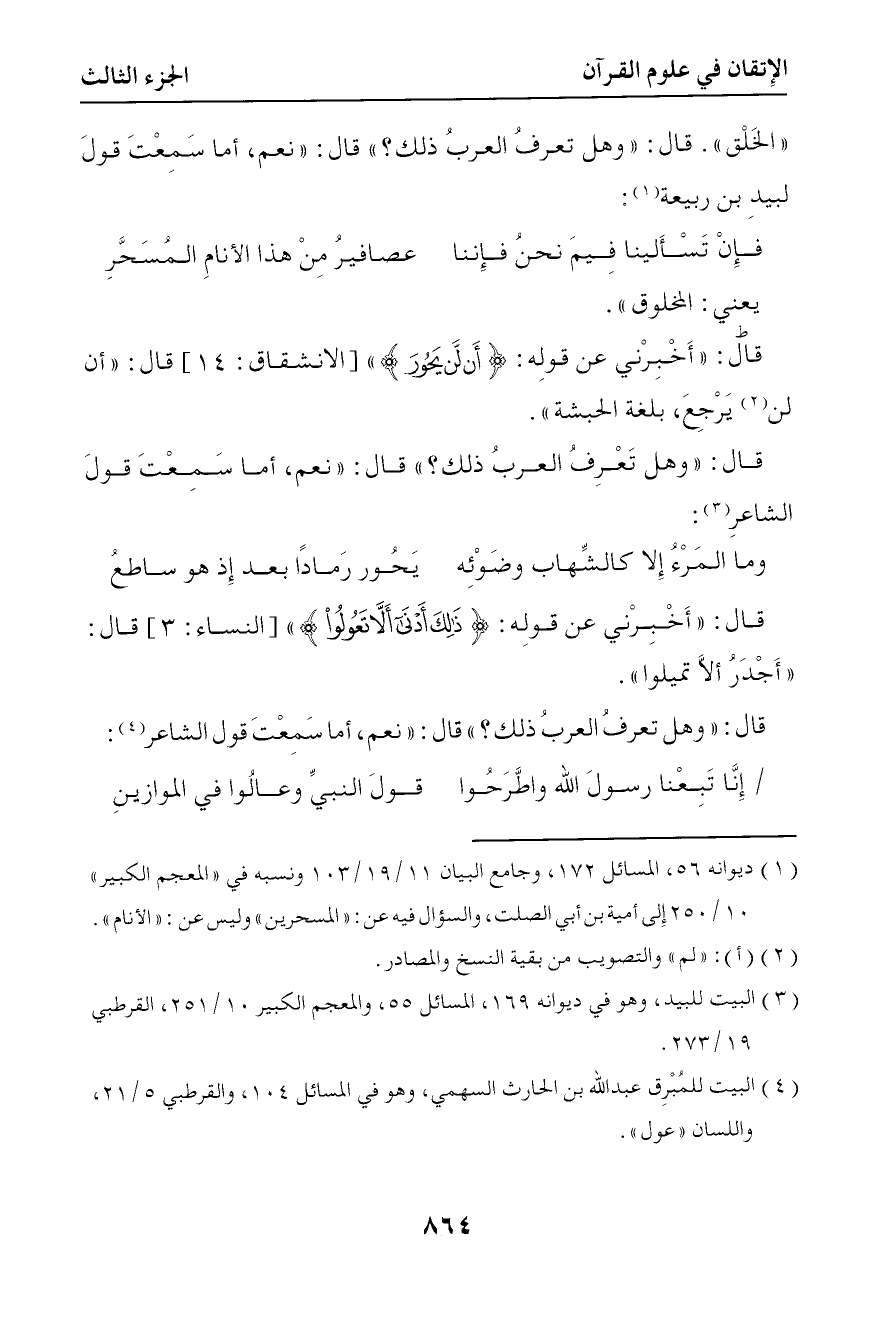 الإتقان في علوم القرآن
الجزء الثالث
«الخَلْق». قال: «وهل تعرفُ العربُ ذلك؟» قال: «نعم، أما سَمِعْتَ قولَ
لبيدِ بن ربيعة(١):
فإنْ تَسْألينا فِيمَ نحنُ فإننا عصافيرُ مِنْ هذا الأنامِ المُسَحَّرِ
يعني: المخلوق».
ط
قال: «أَخْبِرْني عن قوله: ﴿أَن لَّن يَحُورَ﴾» [الانشقاق: ١٤] قال: «أن
لن(٢) يَرْجِعَ، بلغة الحبشة».
قال: «وهل تَعْرِفُ العربُ ذلك؟» قال: «نعم، أما سَمِعْتَ قولَ
الشاعرِ(٣):
وما المَرْءُ إلا كالشِّهاب وضَوْئِه يَحُور رَمادًا بعد إذ هو ساطعُ
قال: «أَخْبِرْني عن قوله: ﴿ذَٰلِكَ أَدْنَىٰٓ أَلَّا تَعُولُواْ﴾» [النساء: ٣] قال:
«أَجْدَرُ ألاَّ تميلوا».
قال: «وهل تعرفُ العربُ ذلك؟» قال: «نعم، أما سَمِعْتَ قول الشاعر(٤):
/ إنَّا تَبِعْنا رسولَ الله واطَّرَحُوا قولَ النبيِّ وعالُوا في الموازينِ
(١) ديوانه ٥٦، المسائل ١٧٢، وجامع البيان ١١/١٩/١٠٣ ونسبه في «المعجم الكبير»
١٠/٢٥٠ إلى أمية بن أبي الصلت، والسؤال فيه عن: «المسحرين» وليس عن: «الأنام».
(٢) (أ): «لم» والتصويب من بقية النسخ والمصادر.
(٣) البيت للبيد، وهو في ديوانه ١٦٩، المسائل ٥٥، والمعجم الكبير ١٠/٢٥١، القرطبي
١٩/٢٧٣.
(٤) البيت للمُبْرِق عبدالله بن الحارث السهمي، وهو في المسائل ١٠٤، والقرطبي ٥/٢١،
واللسان «عول».
٨٦٤